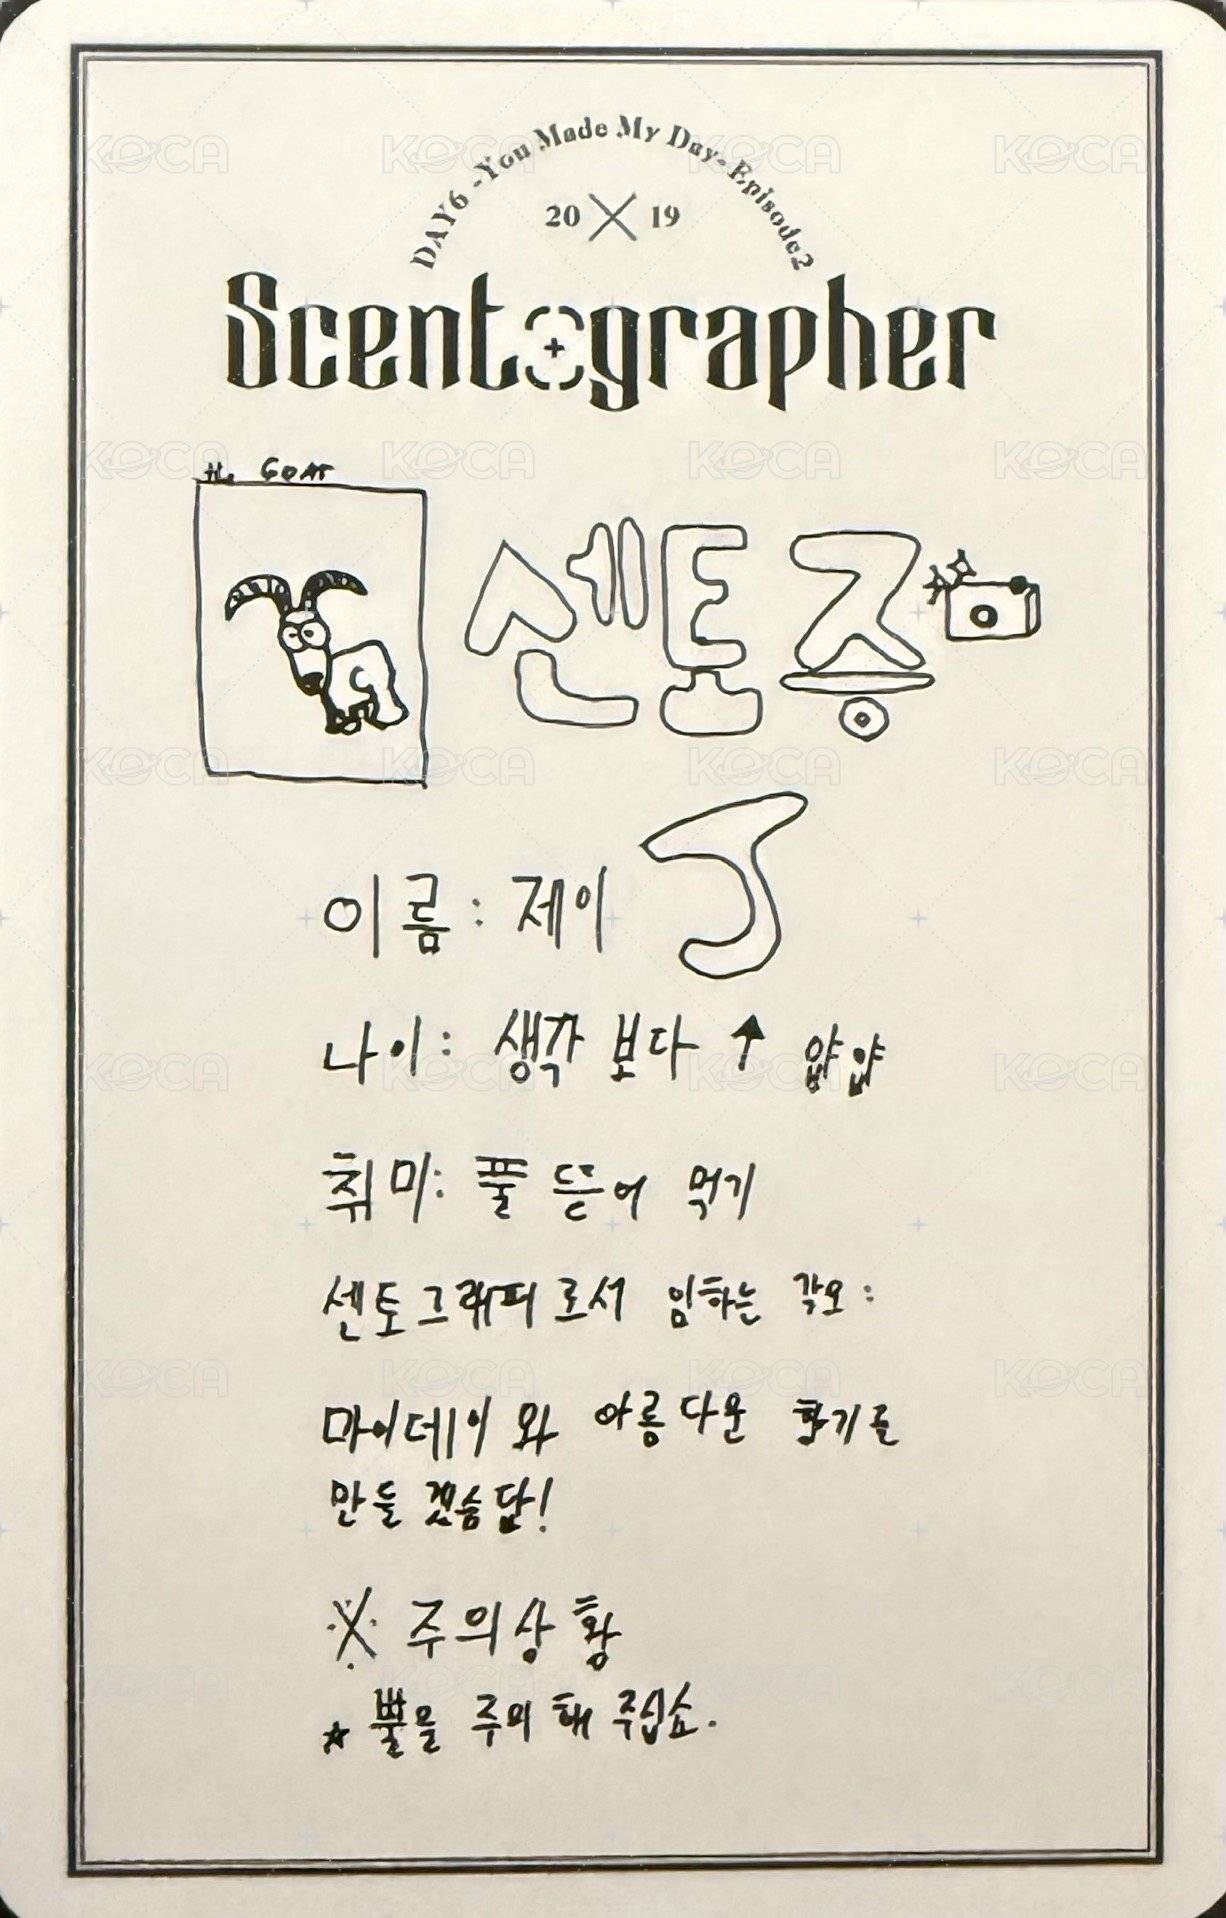 DAY6 -You Made My Day- Episode2
20 19
Scentographer
GOAT
센토즈
이름 : 제이 J
나이 : 생각 보다 ↑ 얍얍
취미 : 풀 뜯어 먹기
센토그래퍼로서 임하는 각오 :
마이데이와 아름다운 향기를
만들겠슴답!
※ 주의상황
★ 뿔을 주의해 주십쇼.
KOCA